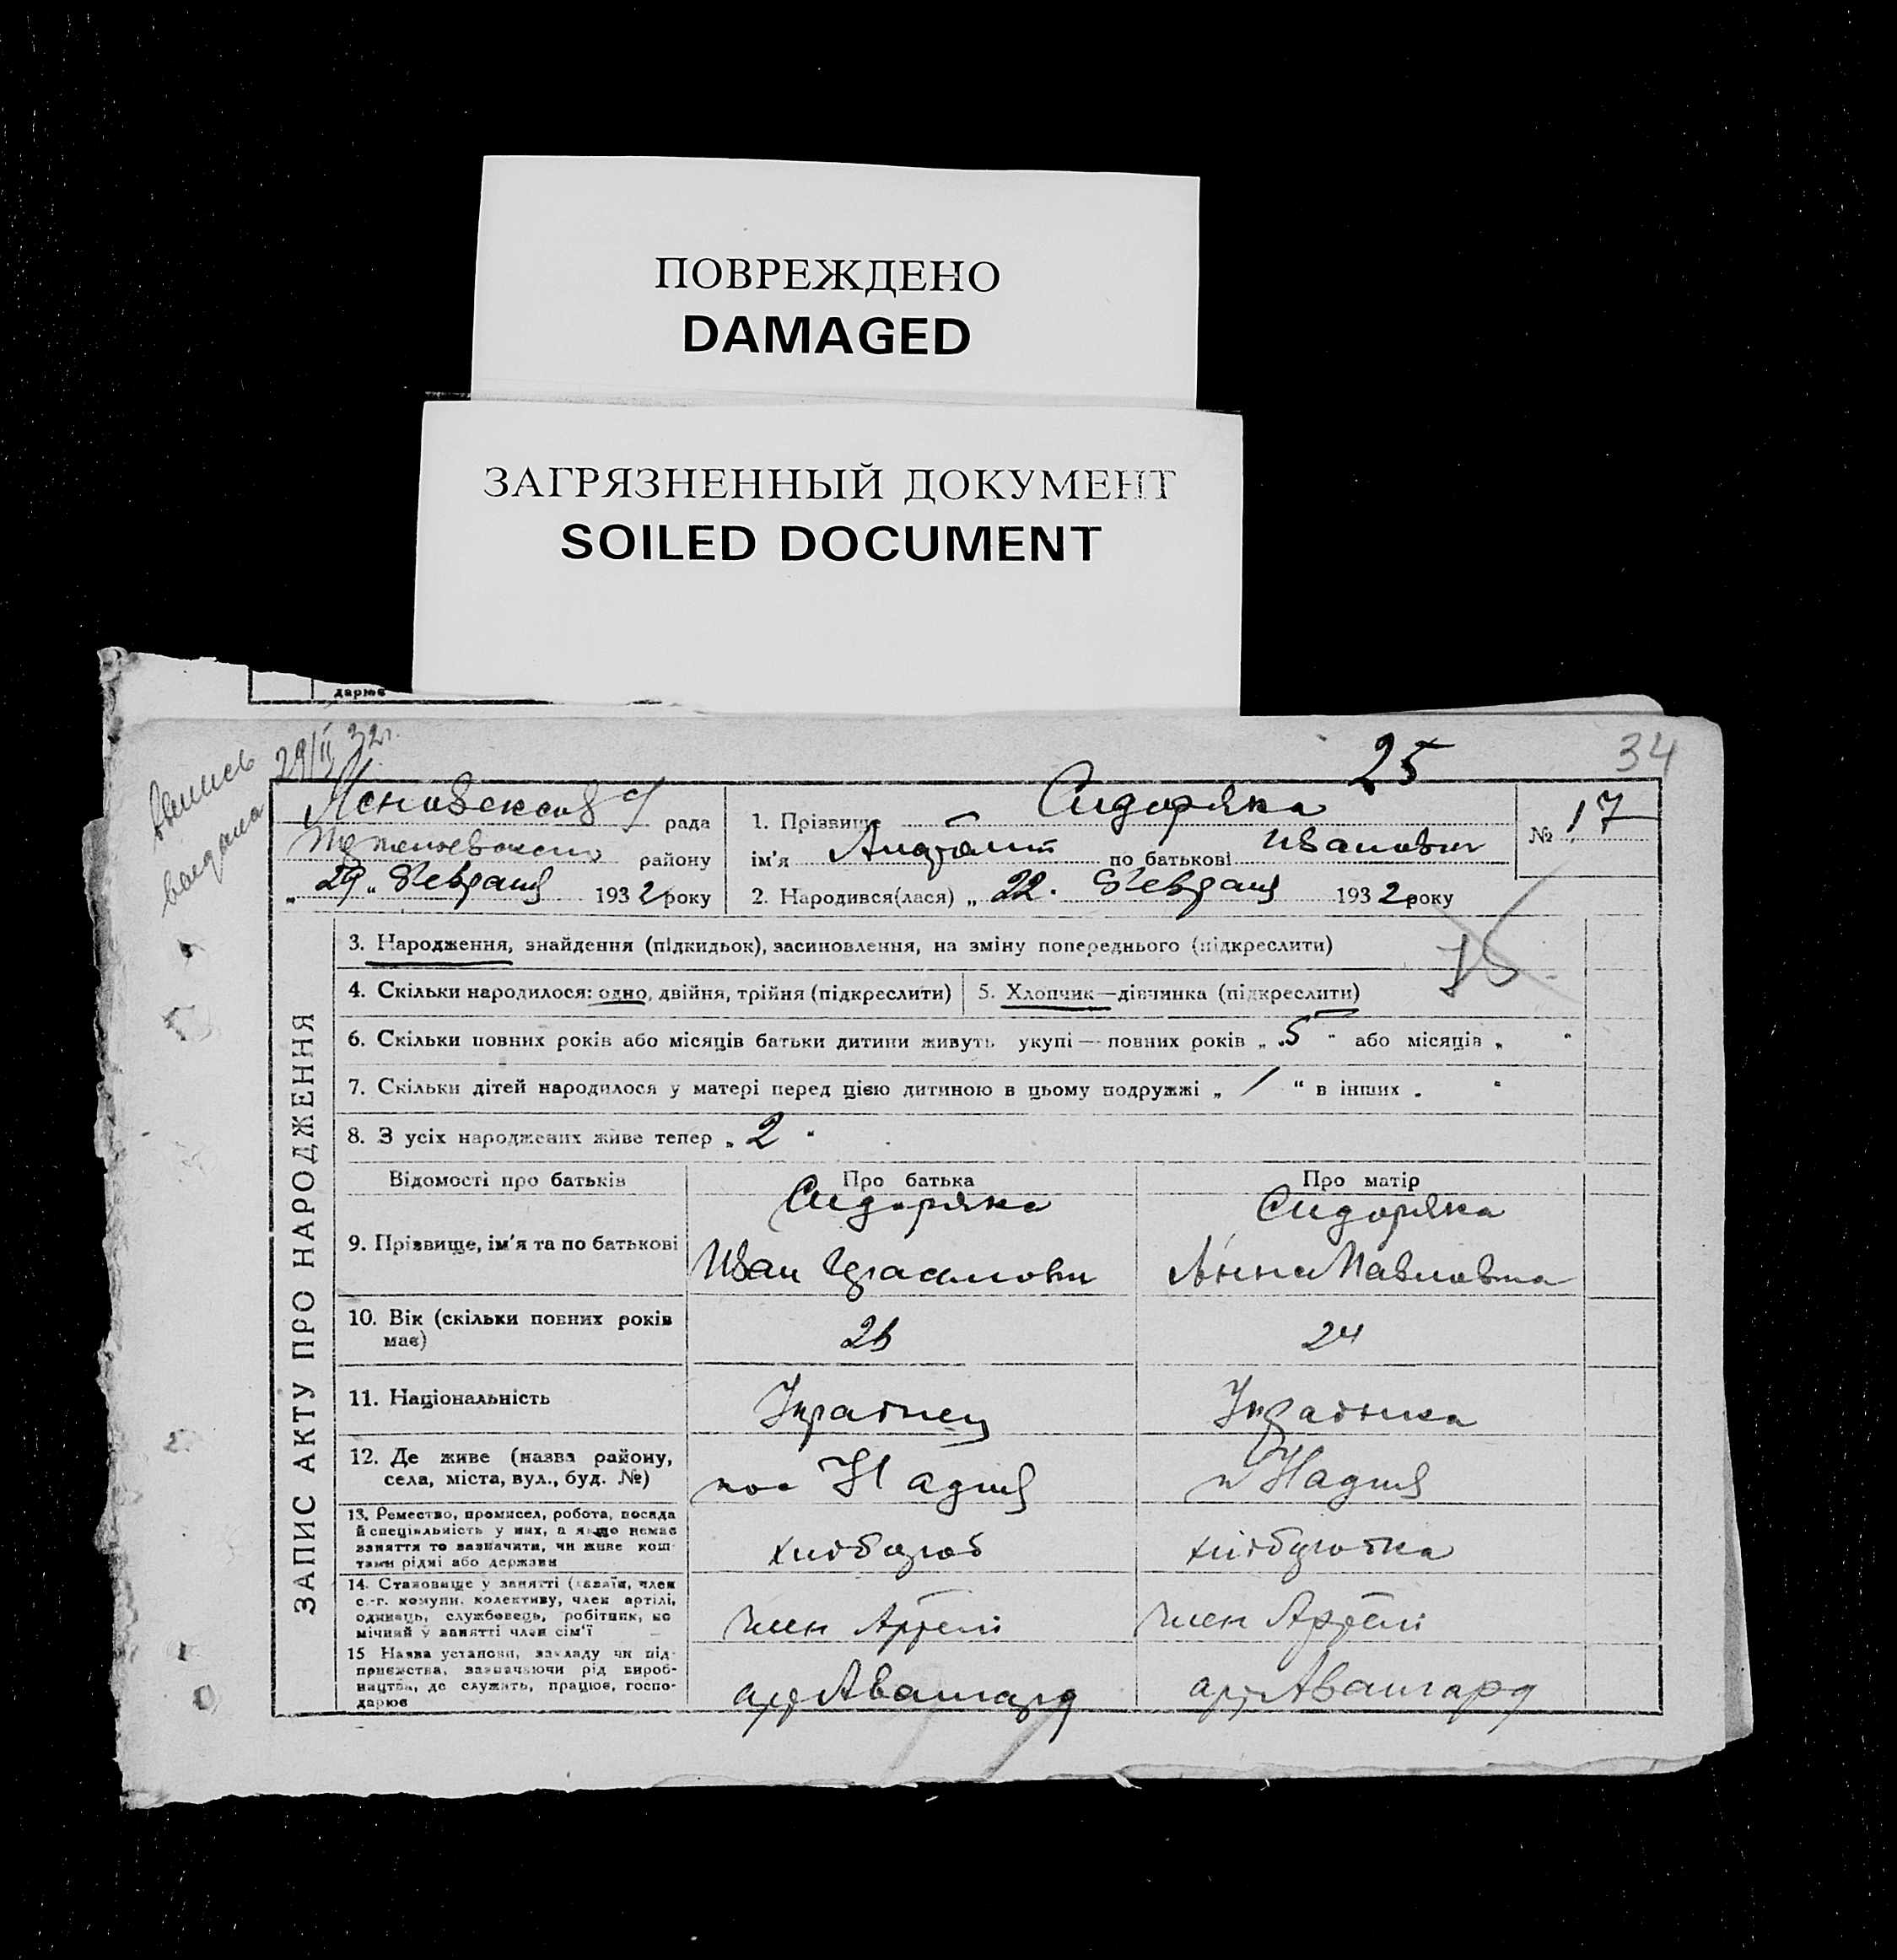 ПОВРЕЖДЕНО
DAMAGED
ЗАГРЯЗНЕННЫЙ ДОКУМЕНТ
SOILED DOCUMENT
дарює
29/II 32г.
25
34
выдана
рада
району
„29„ Февраля 1932 року
1. Прізвище Сидоряка
ім'я по батькові Иванович
№ 17
2. Народився(лася) „22. Февраля 1932 року
ЗАПИС АКТУ ПРО НАРОДЖЕННЯ
3. Народження, знайдення (підкидьок), засиновлення, на зміну попереднього (підкреслити)
4. Скільки народилося: одно, двійня, трійня (підкреслити)
5. Хлопчик—дівчинка (підкреслити)
6. Скільки повних років або місяців батьки дитини живуть укупі — повних років „5" або місяців „ "
7. Скільки дітей народилося у матері перед цією дитиною в цьому подружжі „ 1 " в інших „ "
8. З усіх народжених живе тепер „2"
Відомості про батьків
Про батька
Про матір
9. Прізвище, ім'я та по батькові
Сидоряка
Иван
Сидоряка
Анна Павловна
10. Вік (скільки повних років
має)
26
24
11. Національність
Украінец
Украінка
12. Де живе (назва району,
села, міста, вул., буд. №)
пос Надия
п Надия
13. Ремество, промисел, робота, посада
й спеціяльність у них, а якщо немає
заняття то зазначити, чи живе кош-
тами рідні або держави
хлібороб
хліборобка
14. Становище у занятті (хазяїн, член
с.-г. комуни, колективу, член артілі,
одинець, службовець, робітник, по
мічний у занятті член сім'ї
член Артели
член Артели
15 Назва установи, закладу чи під-
приємства, зазначаючи рід вироб-
ництва, де служить, працює, госпо-
дарює
арт Авангард
арт Авангард